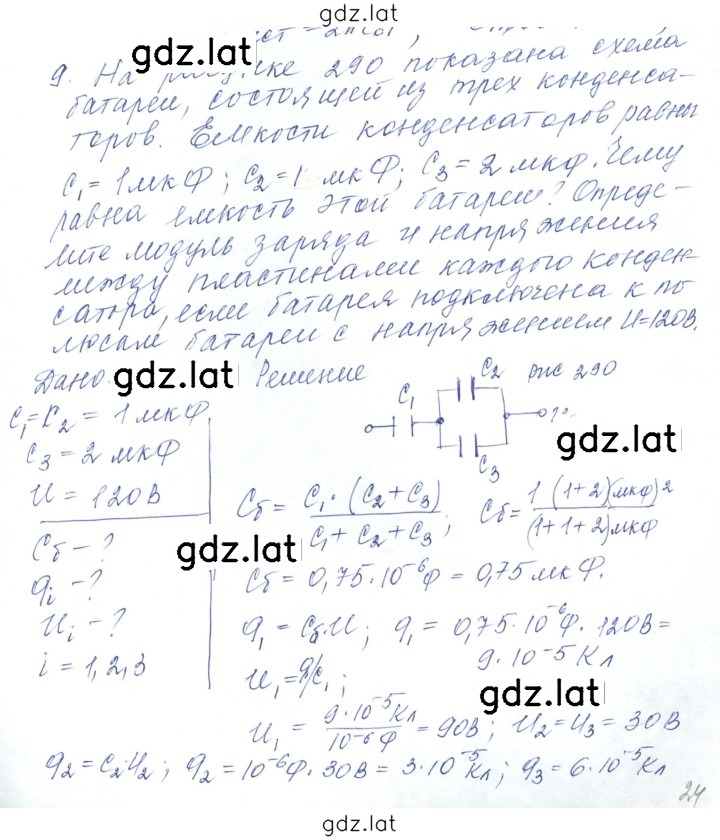 gdz.lat
gdz.lat
9. На рисунке 290 показана схема
батареи, состоящей из трех конденса-
торов. Емкости конденсаторов равны
C₁ = 1 мкФ; C₂ = 1 мкФ; C₃ = 2 мкФ. Чему
равна емкость этой батареи? Опреде-
лите модуль заряда и напряжения
между пластинами каждого конден-
сатора, если батарея подключена к по
люсам батареи с напряжением U=120В.
Дано. gdz.lat Решение
C₂ рис 290
C₁
C₃
gdz.lat
C₁ = C₂ = 1 мкФ
C₃ = 2 мкФ
U = 120 В
Cб - ?
qi - ?
Ui - ?
i = 1, 2, 3
Cб = C₁·(C₂+C₃) / C₁ + C₂ + C₃; Cб = 1(1+2)(мкФ)² / (1+1+2)мкФ
gdz.lat
Cб = 0,75·10⁻⁶Ф = 0,75 мкФ.
q₁ = Cб·U; q₁ = 0,75·10⁻⁶Ф·120В =
9·10⁻⁵Кл
U₁ = q/C₁;
gdz.lat
U₁ = 9·10⁻⁵Кл / 10⁻⁶Ф = 90В; U₂ = U₃ = 30В
q₂ = C₂U₂; q₂ = 10⁻⁶Ф·30В = 3·10⁻⁵Кл; q₃ = 6·10⁻⁵Кл
24
gdz.lat